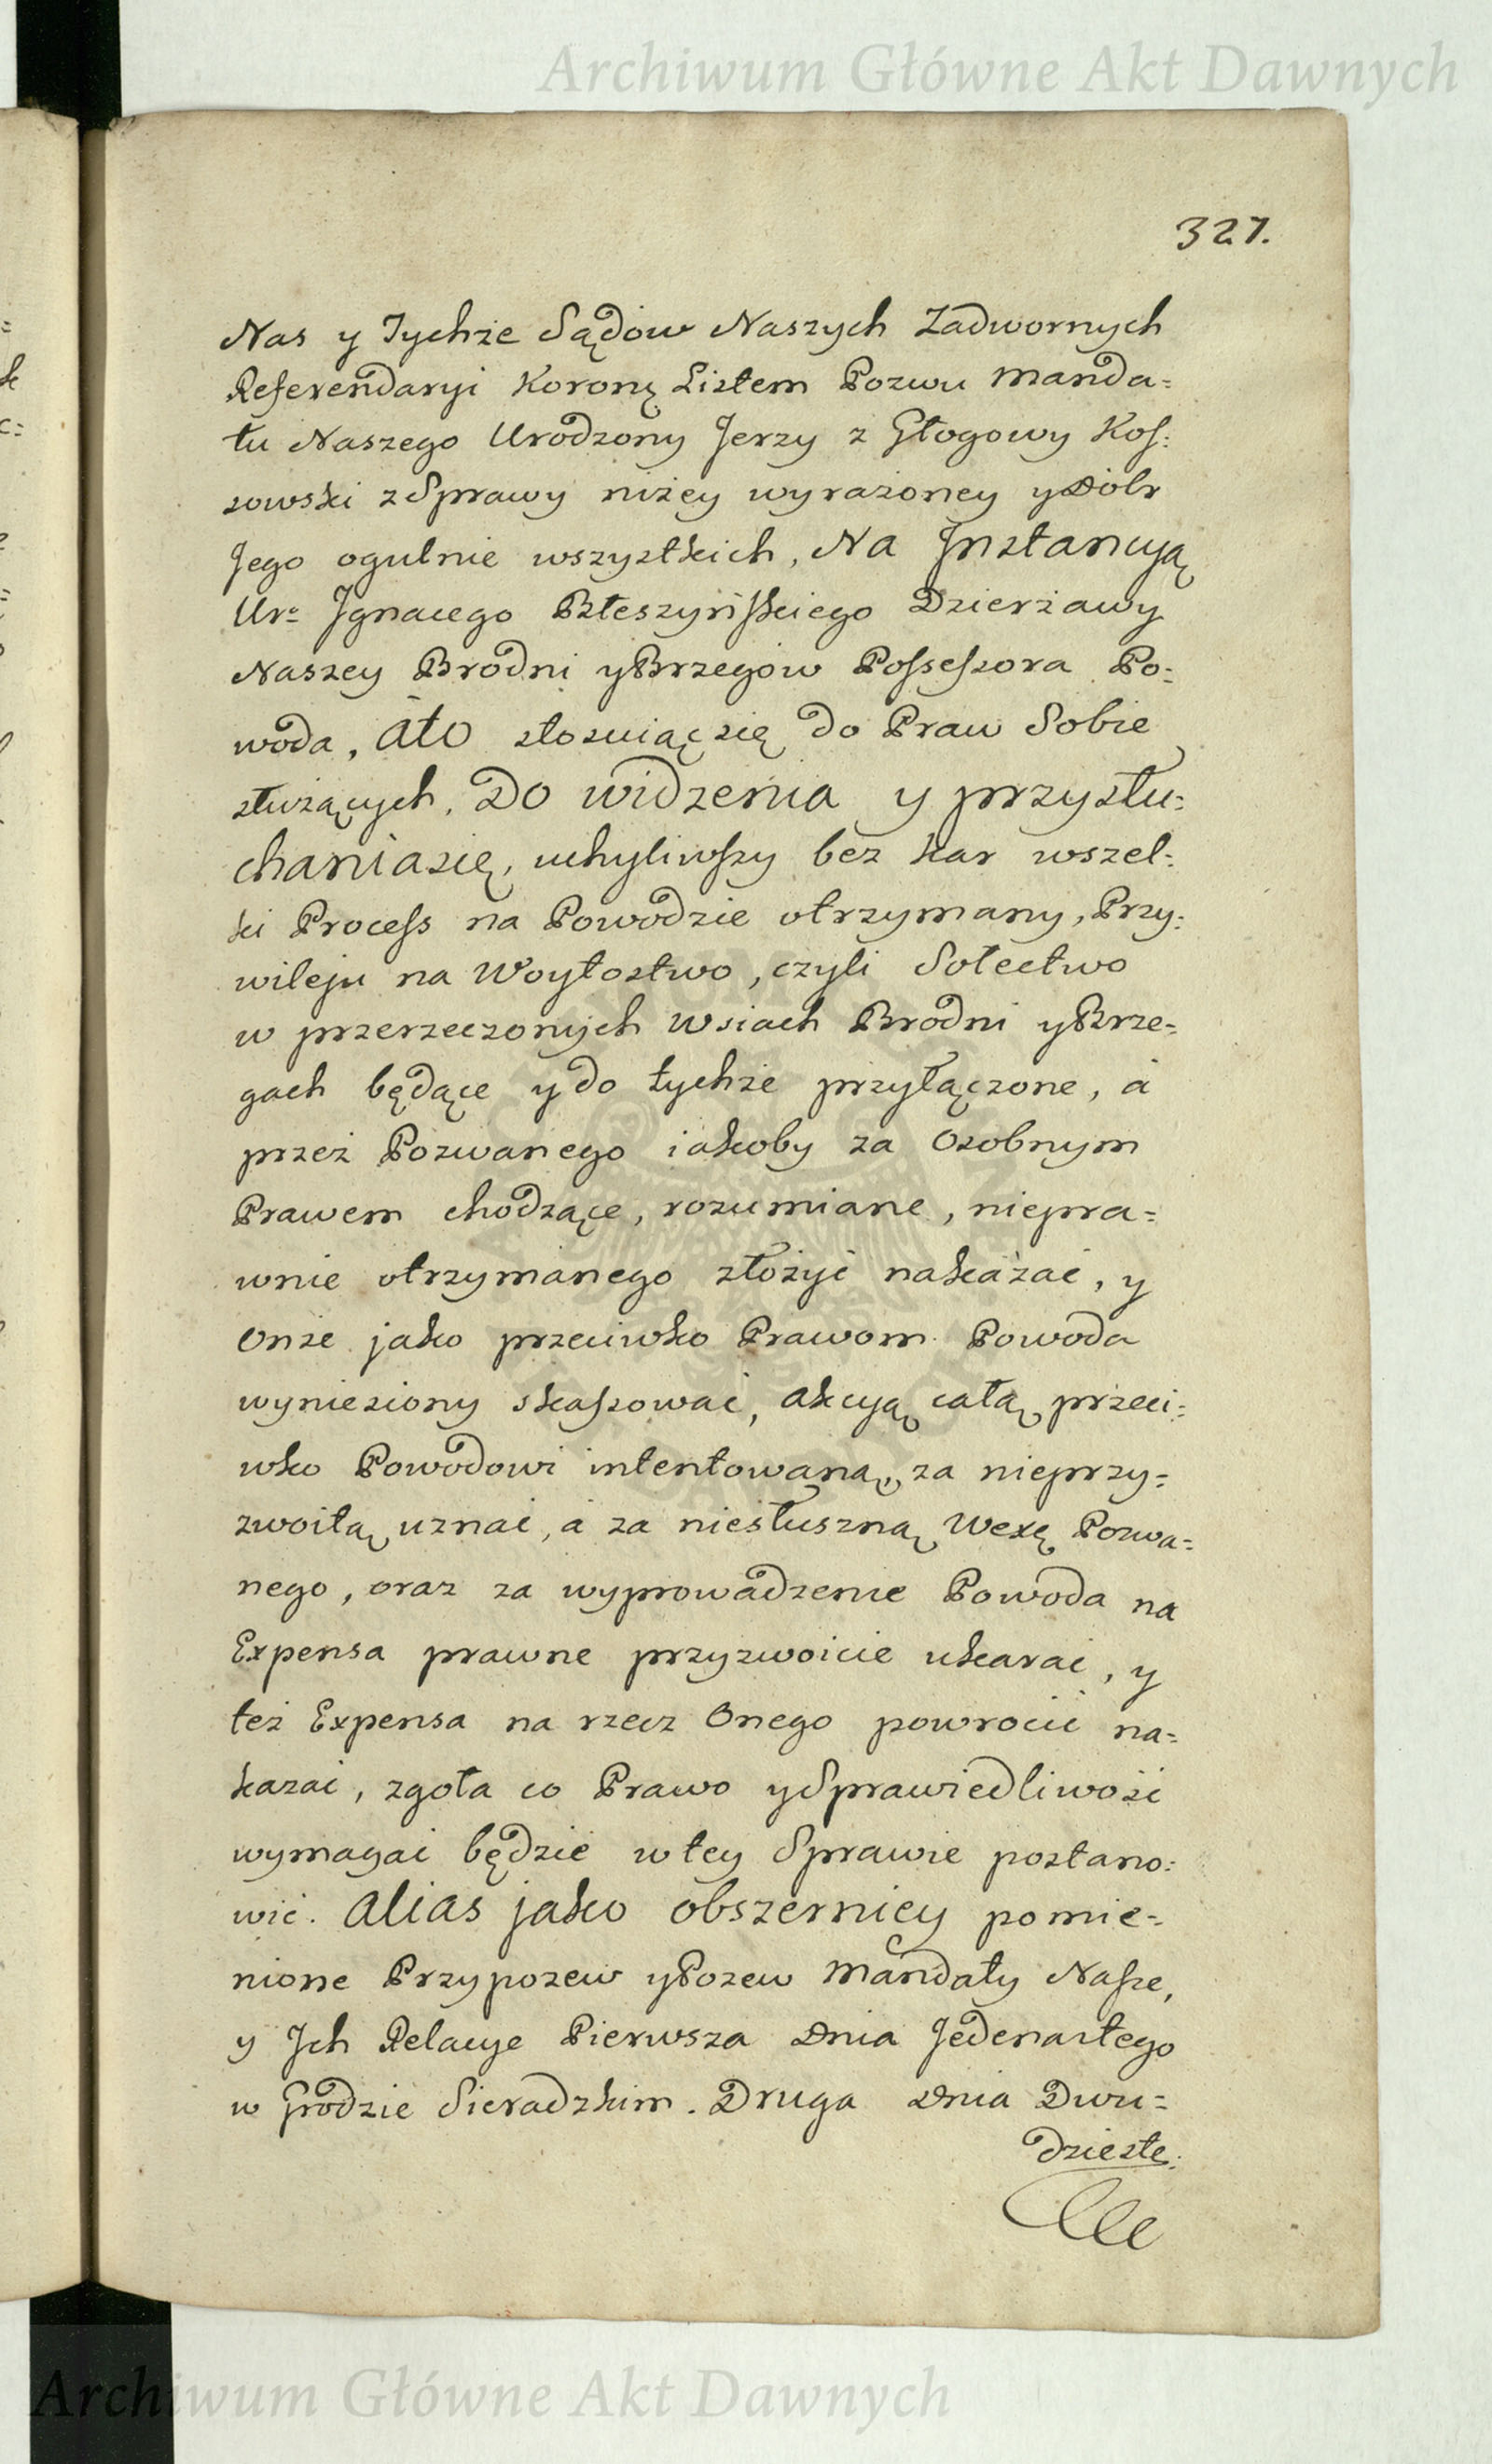 Archiwum Główne Akt Dawnych
327.
Nas y Tychże Sądow Naszych Zadwornych
Referendaryi Koronę Listem Pozwu Manda=
tu Naszego Urodzony Jerzy z Głogowy Kos:
sowski z Sprawy niżey wyrażoney y Dobr
Jego ogulnie wszystkich, Na Jnstancyą
Ur: Jgnacego Błeszyńskiego Dzierżawy
Naszey Brodni y Brzegow Possessora Po=
woda, Ato stosuiąc się do Praw Sobie
służących, Do widzenia y przysłu=
chania się, uchyliwszy bez kar wszel=
ki Process na Powodzie otrzymany, Przy:
wileju na Woytostwo, czyli Sołectwo
w przerzeczonych Wsiach Brodni y Brze=
gach będące y do tychże przyłączone, á
przez Pozwanego iakoby za Osobnym
Prawem chodzące, rozumiane, niepra=
wnie otrzymanego złożyć nakazać, y
Onże jako przeciwko Prawom Powoda
wyniesiony skassować, akcyą całą przeci=
wko Powodowi intentowaną, za nieprzy=
zwoitą uznać, á za niesłuszną Wexę Pozwa=
nego, oraz za wyprowadzenie Powoda na
Expensa prawne przyzwoicie ukarać, y
też Expensa na rzecz Onego powrocić na=
kazać, zgoła co Prawo y Sprawiedliwość
wymagać będzie w tey Sprawie postano=
wić. Alias jako obszerniey pomie=
nione Przypozew y Pozew Mandaty Nasze,
y Jch Relacye Pierwsza Dnia Jedenastego
w Grodzie Sieradzkim. Druga Dnia Dwu=
dzieste:
Archiwum Główne Akt Dawnych